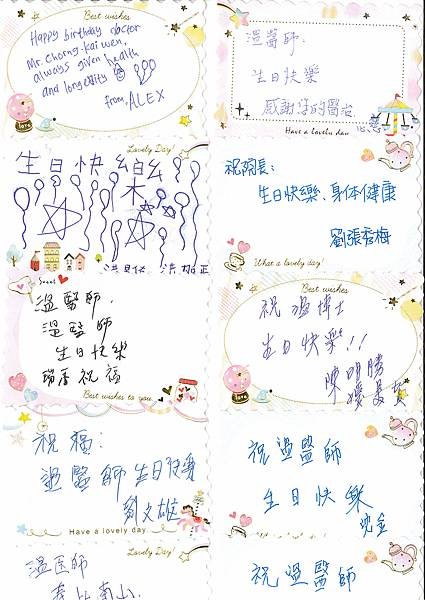 Best wishes
Happy birthday doctor
Mr. Chorng-kai wen,
always given health
and longevity
From, ALEX
溫醫師:
生日快樂
感謝您的醫治
Have a lovely day
Lovely Day!
生日快
祝院長:
生日快樂、身体健康
劉張秀梅
What a lovely day!
Sweet
溫醫師.
溫醫師
生日快樂
瑞香祝福
Best wishes to you.
Best wishes
祝溫博士
生日快樂!!
陳明勝
祝福:
溫醫師生日快樂
劉文雄
Have a lovely day
祝溫醫師
生日快樂
Lovely Day!
溫医師
壽比南山
祝溫醫師